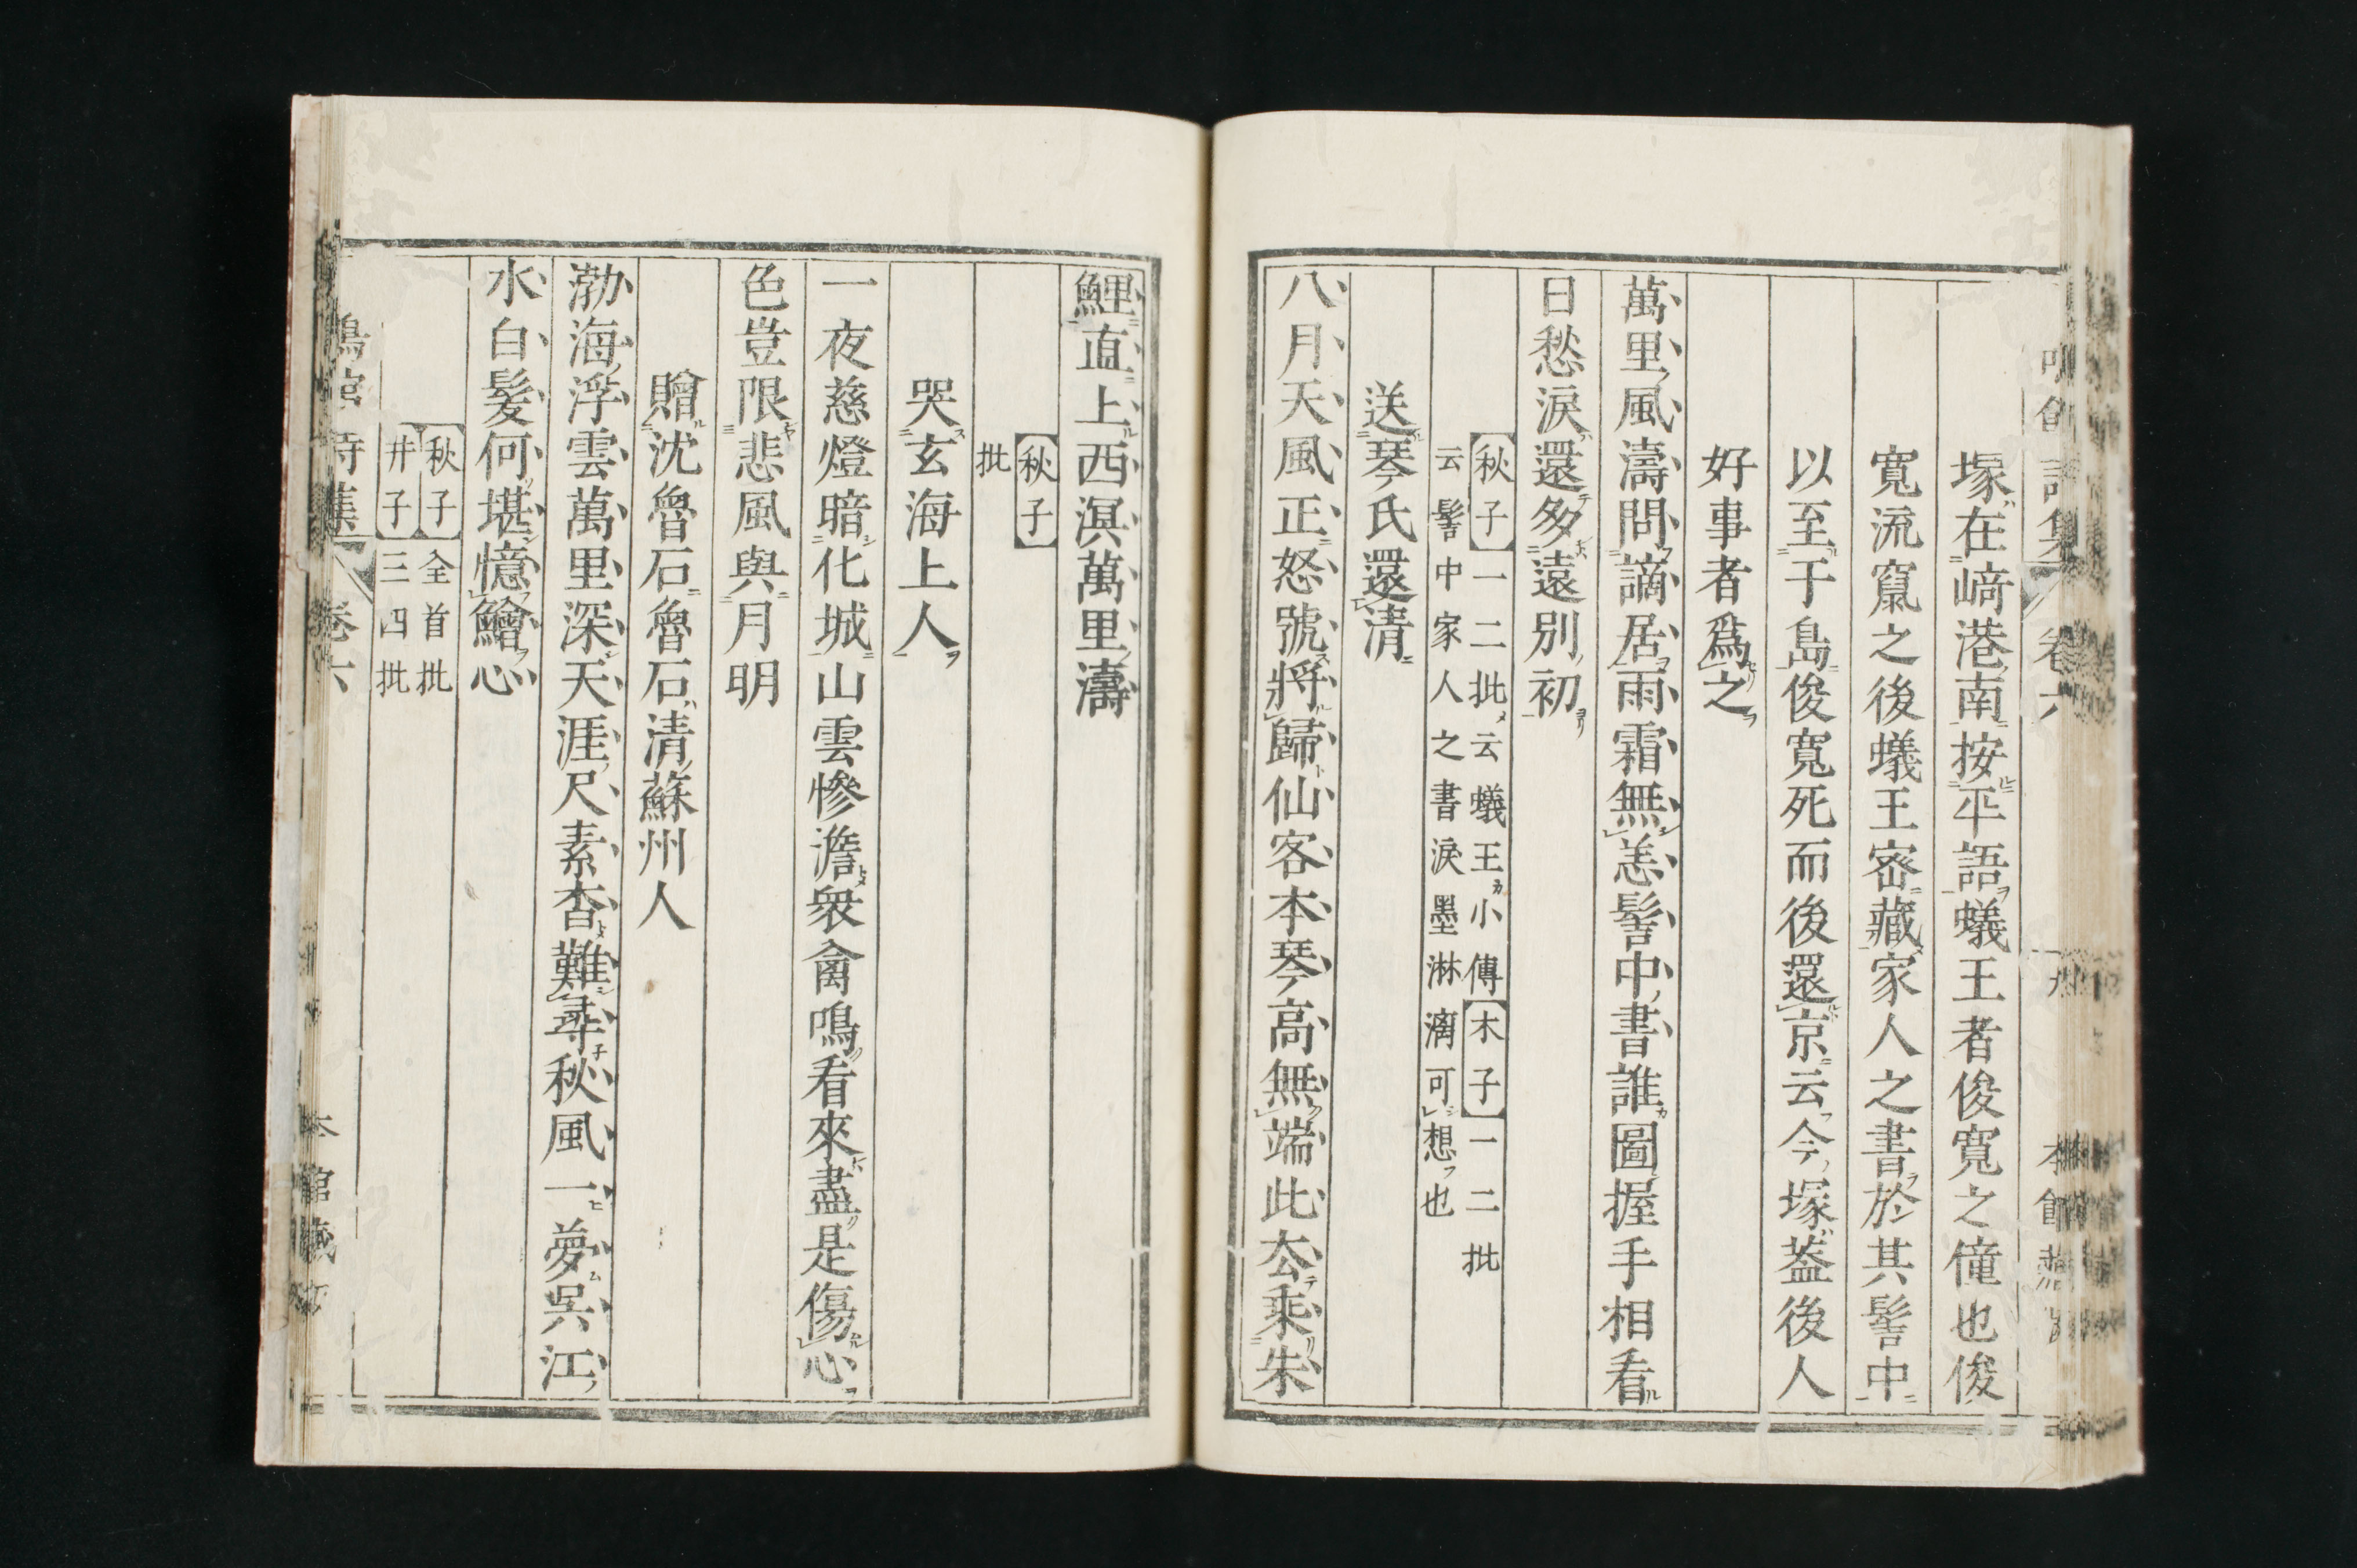 塚在﨑港南按平語蟻王者俊寬之僮也俊
寬流竄之後蟻王密藏家人之書於其髻中
以至于島俊寬死而後還京云今塚蓋後人
好事者爲之
萬里風濤問謫居雨霜無恙髻中書誰圖握手相看
日愁淚還多遠別初
秋子一二批云蟻王小傳木子一二批
云髻中家人之書淚墨淋漓可想也
送琴氏還清
八月天風正怒號將歸仙客本琴高無端此厺乘朱
鯉直上西溟萬里濤
秋子
批
哭玄海上人
一夜慈燈暗化城山雲慘澹衆禽鳴看來盡是傷心
色豈限悲風與月明
贈沈魯石魯石清蘇州人
渤海浮雲萬里深天涯尺素杳難尋秋風一夢吳江
水白髪何堪憶鱠心
秋子全首批
井子三四批
詩集 卷六